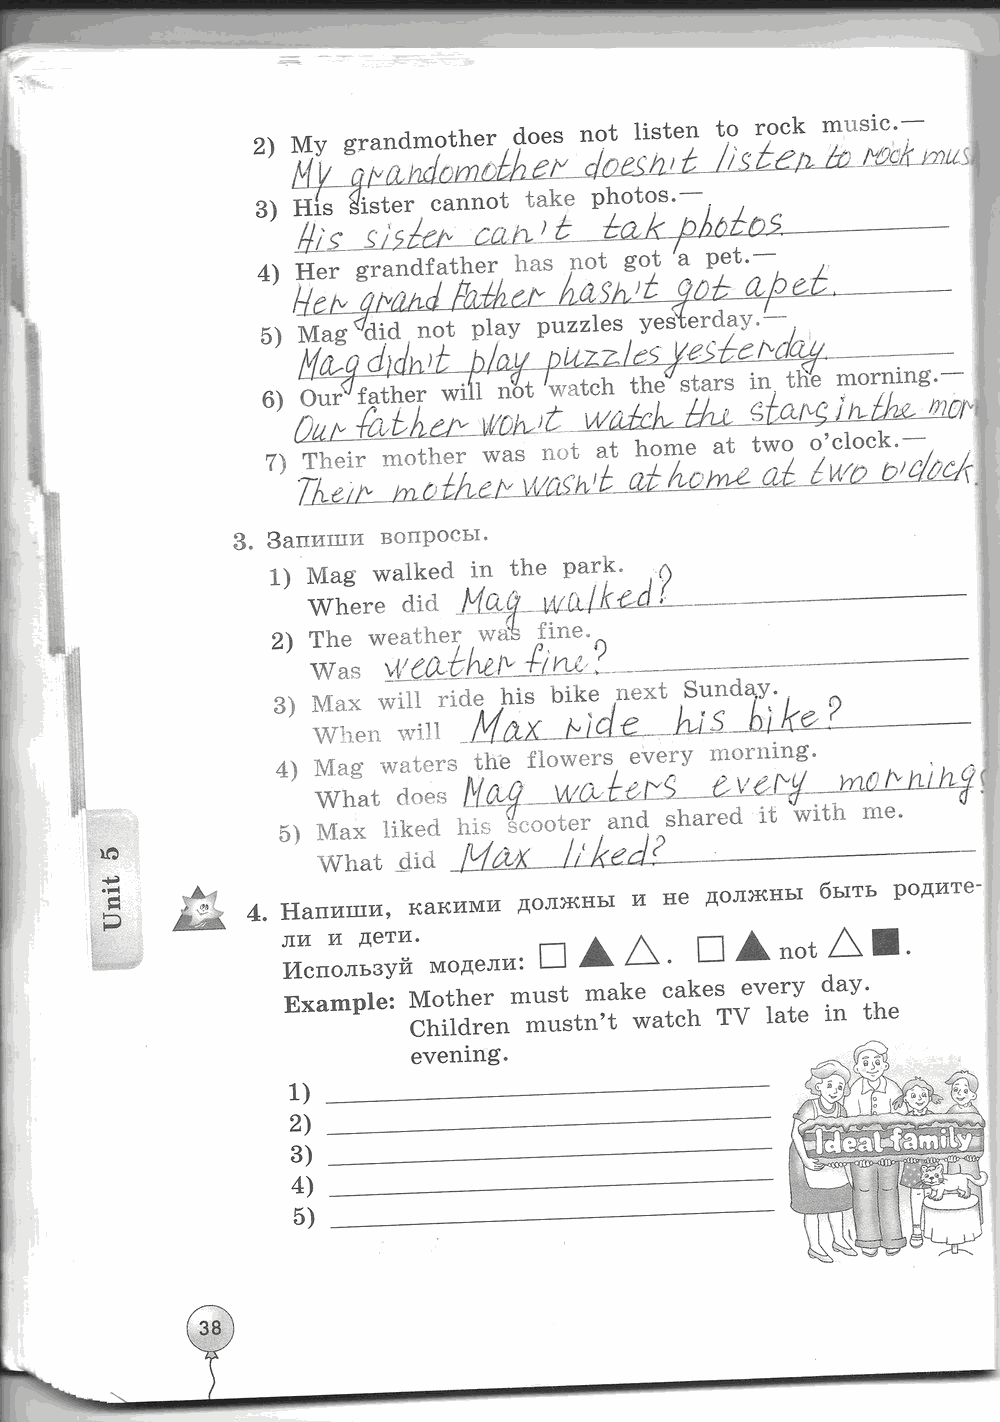 2) My grandmother does not listen to rock music.—
My grandomother doesn't listen to rock mus
3) His sister cannot take photos.—
His sister can't tak photos.
4) Her grandfather has not got a pet.—
Her grand father hasn't got a pet.
5) Mag did not play puzzles yesterday.—
Mag didn't play puzzles yesterday.
6) Our father will not watch the stars in the morning.—
Our father won't watch the stars in the mor
7) Their mother was not at home at two o'clock.—
Their mother wasn't at home at two o'clock.
3. Запиши вопросы.
1) Mag walked in the park.
Where did Mag walked?
2) The weather was fine.
Was weather fine?
3) Max will ride his bike next Sunday.
When will Max ride his bike?
4) Mag waters the flowers every morning.
What does Mag waters every morning?
5) Max liked his scooter and shared it with me.
What did Max liked?
Unit 5
4. Напиши, какими должны и не должны быть родите-
ли и дети.
Используй модели: □ ▲ △. □ ▲ not △ ■.
Example: Mother must make cakes every day.
Children mustn't watch TV late in the
evening.
1)
2)
3)
4)
5)
Ideal family
38